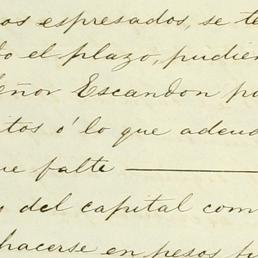 os espresados, se te
do el plazo, pudien
eñor Escandon po
itos ó lo que adeud
ue falte
s del capital com
hacerse en pesos fu